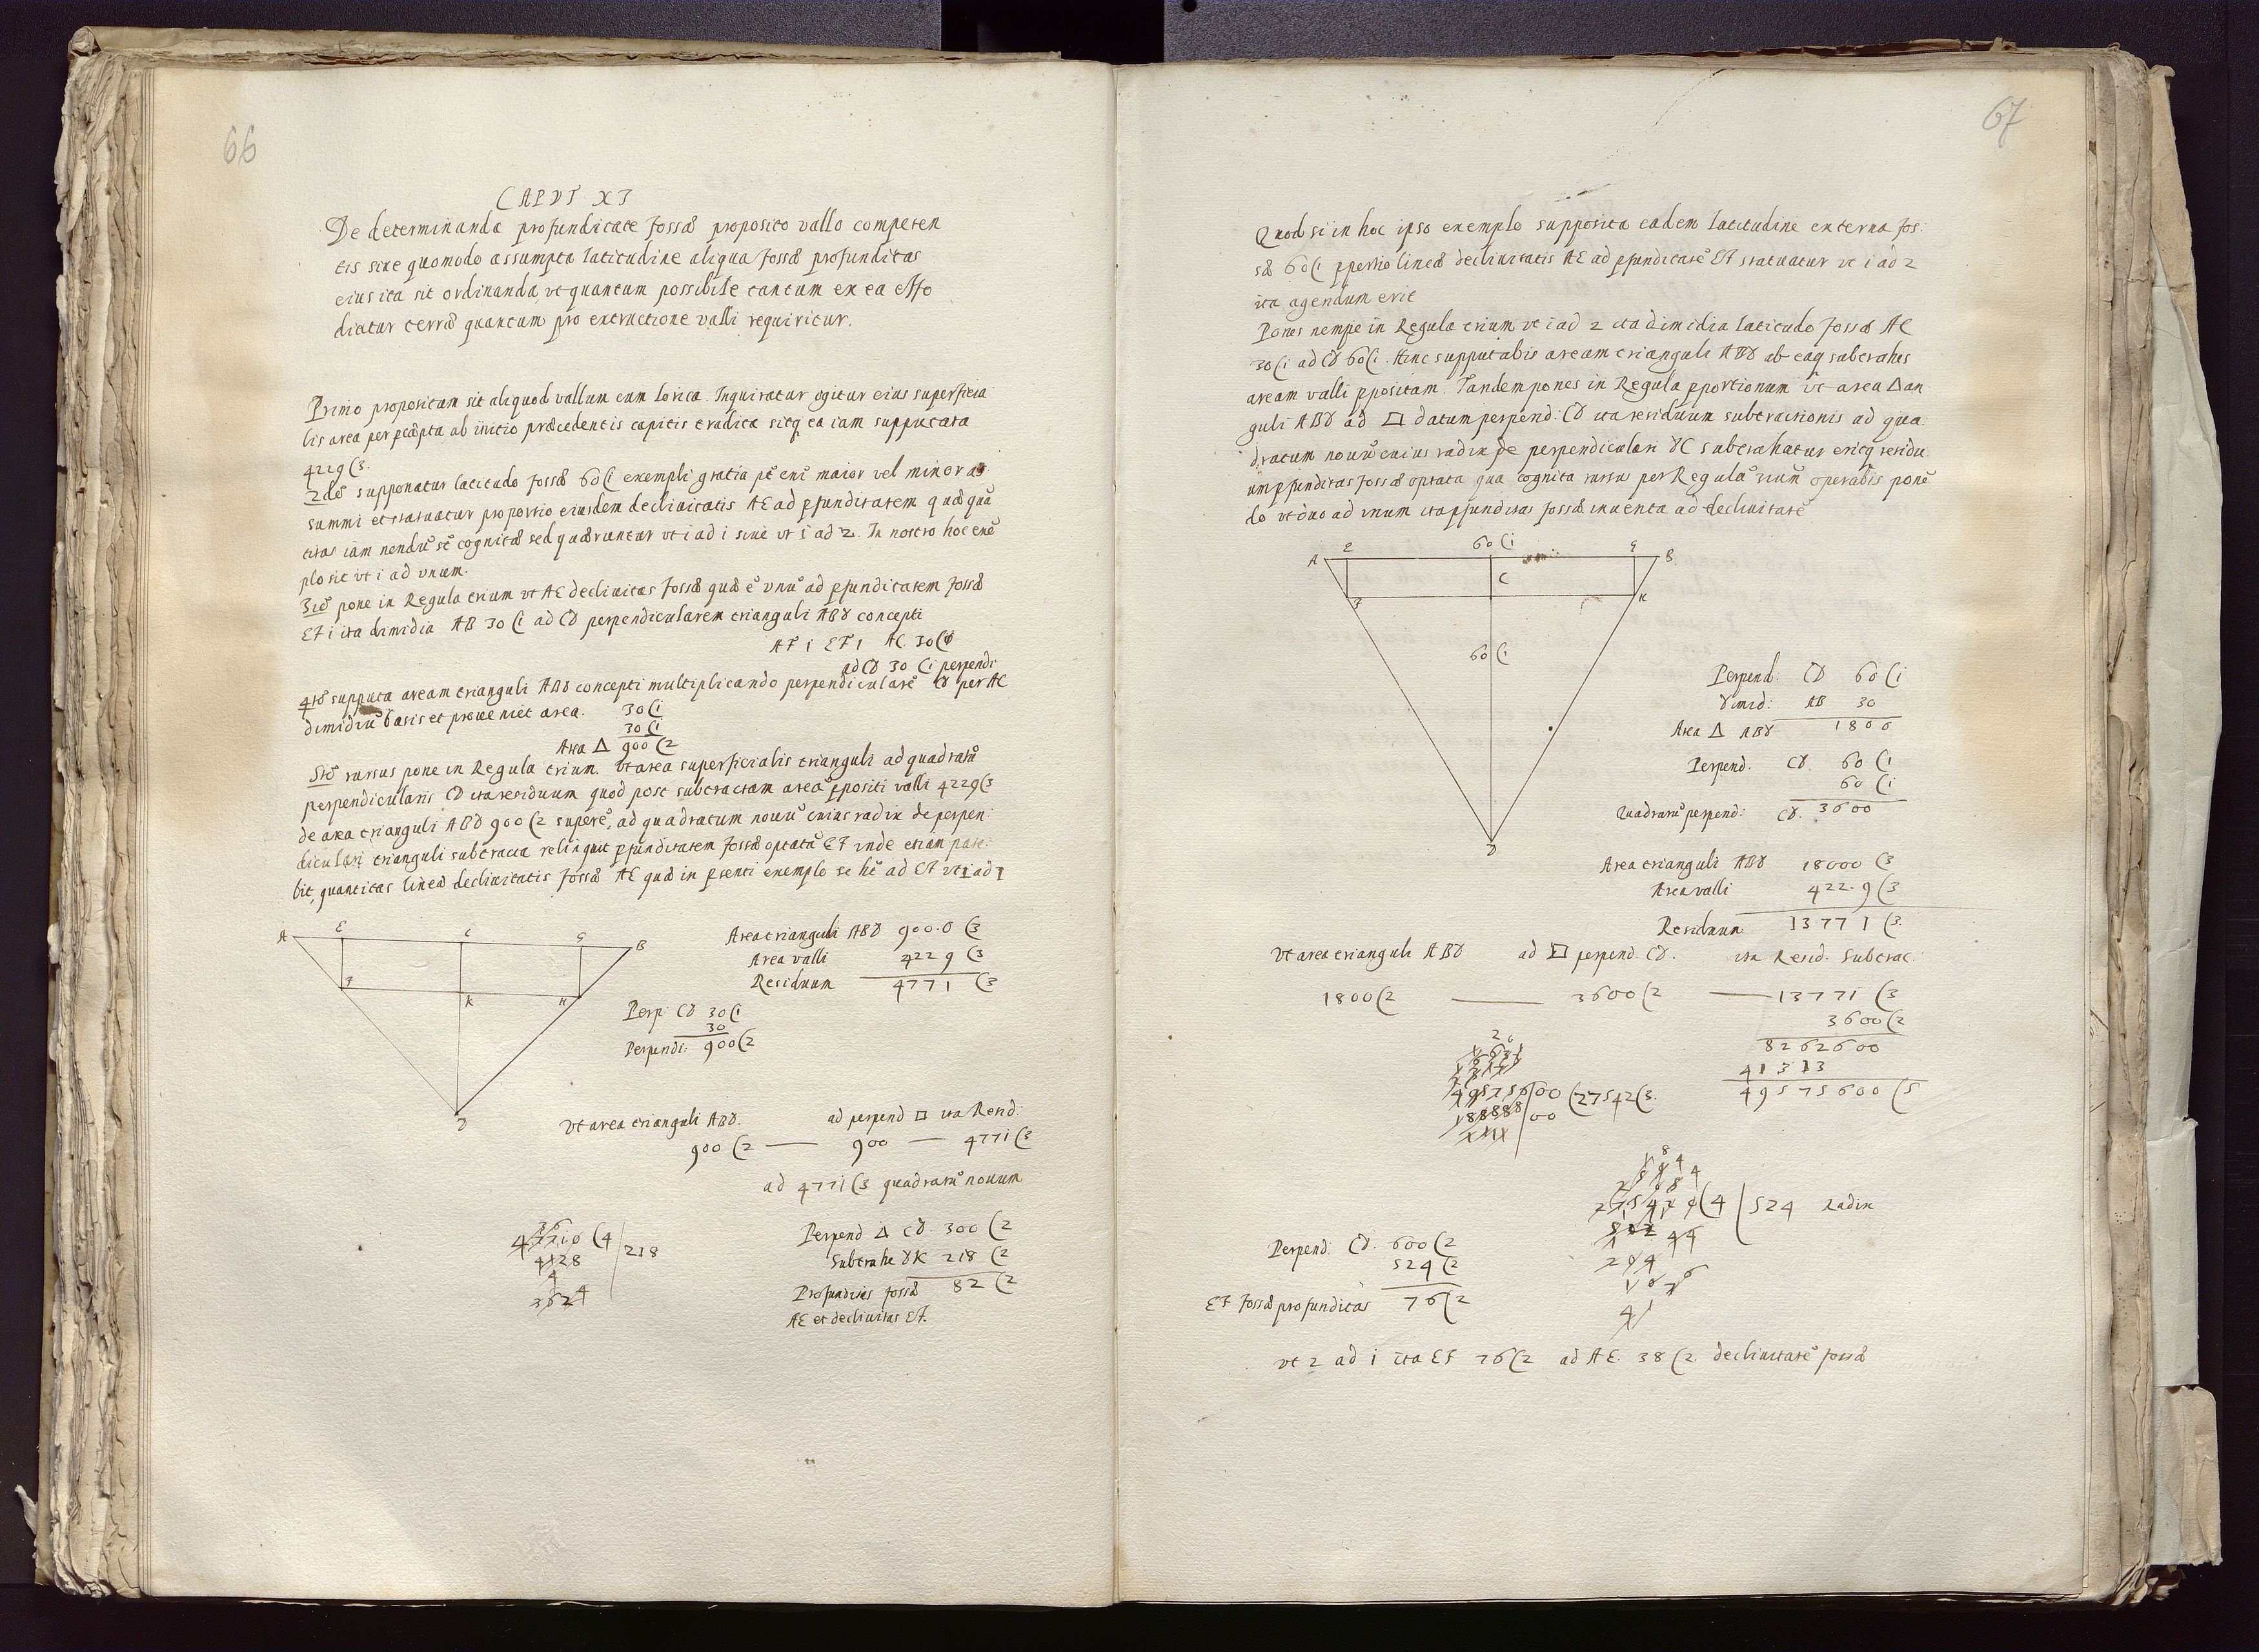 66
CAPUT XI
De determinanda profunditate fossæ proposito vallo competen
tis sive quomodo assumpta latitudine aliqua fossæ profunditas
eius ita sit ordinanda, ut quantum possibile tantum ex ea effo
diatur terræ quantum pro extructione valli requiritur.
Primo propositum sit aliquod vallum cum lorica. Inquiratur igitur eius superficia
lis area per præcepta ab initio præcedentis capitis tradita sitq ea iam supputata
4229(3.
2do supponatur latitudo fossæ 60(i exempli gratia pt eni maior vel minor as
summi et statuatur proportio eiusdem declivitatis AE ad pfunditatem quæ quā
titas iam nondū st cognitæ sed quæruntur ut i ad i sive ut i ad 2. In nostro hoc exē
plo sit ut i ad unum.
3io pone in Regula trium ut AE declivitas fossæ quæ ē unū ad pfunditatem fossæ
EF i ita dimidia AB 30(i ad CD perpendicularem trianguli ABD concepti
AF i EF i AC 30(i
ad CD 30 (i perpendi
4to supputa aream trianguli ABD concepti multiplicando perpendicularē CD per AC
dimidiū basis et proveniet area. 30(i
30(i
Area △ 900(2
5to rursus pone in Regula trium. Ut area superficialis trianguli ad quadratū
perpendicularis CD ita residuum quod post subtractam areā ppositi valli 4229(3
de area trianguli ABD 900(2 superē, ad quadratum novū cuius radix de perpen
diculari trianguli subtracta relinquit pfunditatem fossæ optatā EF inde etiam pate
bit, quantitas lineæ declivitatis fossæ AE quæ in psenti exemplo se ht ad EF ut i ad i
A E C G B
F K H
D
Area trianguli ABD 900.0 (3
Area valli 4229 (3
Residuum 4771 (3
Perp: CD 30(i
30
Perpendi: 900(2
Ut area trianguli ABD. ad perpend □ ita Resid:
900 (2 — 900 — 4771(3
ad 4771(3 quadratū novum
(4 / 218
Perpend △ CD. 300 (2
Subtrahe DK 218 (2
Profunditas fossæ 82 (2
AE et declivitas EF.
67
Quod si in hoc ipso exemplo supposita eadem latitudine externa fos:
sæ 60(i pportio lineæ declivitatis AE ad pfunditatē EF statuatur ut i ad 2
ita agendum erit
Pones nempe in Regula trium ut i ad 2 ita dimidia latitudo fossæ AC
30(i ad CD 60(i. Hinc supputabis aream trianguli ABD ab eaq subtrahes
aream valli ppositam. Tandem pones in Regula pportionum ut area △ an
guli ABD ad □ datum perpend: CD ita residuum subtractionis ad qua
dratum novū cuius radix de perpendiculari DC subtrahatur eritq residu
um pfunditas fossæ optata qua cognita rursus per Regulā 3ium operabis ponē
do ut duo ad unum ita pfunditas fossæ inventa ad declivitatē
A E 60(i G B
C
F H
60(i
D
Perpend: CD 60(i
Dimid: AB 30
Area △ ABD 1800
Perpend. CD. 60 (i
60 (i
Quadratū perpend: CD. 3600
Area trianguli ABD 18000 (3
Area valli 422.9(3
Residuum 13771(3.
Ut area trianguli ABD ad □ perpend. CD. ita Resid: Subtrac:
1800(2 — 3600(2 — 13771 (3
3600(2
8262600
41313
49575600 (5
495756/00 (27542(3.
00
(4 / 524 Radix
Perpend: CD. 600(2
524(2
EF fossæ profunditas 76(2
ut 2 ad i ita EF 76(2 ad AE. 38(2. declivitatē fossæ